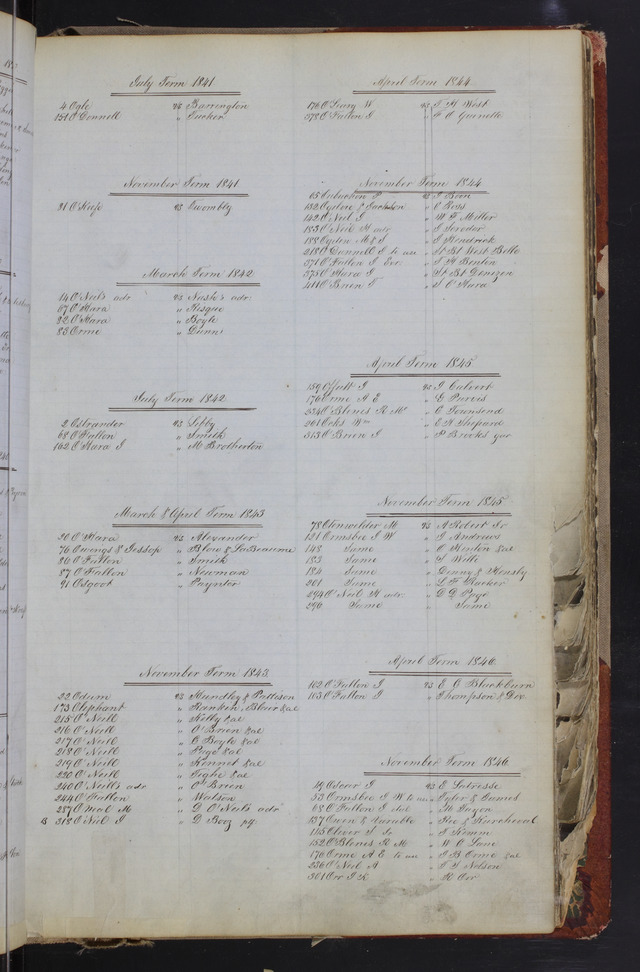 July Term 1841
4 Ogle vs Barrington
151 O'Connell " Tucker
November Term 1841
31 O'Keefe vs Twombly
March Term 1842
14 O'Neil's adr vs Nash's adr.
67 O'Hara " Risque
82 O'Hara " Boyle
83 Orme " Dunn
July Term 1842
2 Ostrander vs
68 O'Fallon " Smith
162 O'Hara J " McBrotherton
March & April Term 1843
30 O'Hara vs Alexander
76 Owings & Jessop " Blow & LaBeaume
80 O'Fallon " Smith
87 O'Fallon " Newman
91 Osgood " Paynter
November Term 1843
22 Odum vs Hundley & Patteson
173 Oliphant " Rankin, Blair &al
215 O'Neill " Kelly &al
216 O'Neill " O'Brien &al
217 O'Neill " C Boyle &al
218 O'Neill " Page &al
219 O'Neill " Kennet &al
220 O'Neill " Tighe &al
240 O'Neill's adr " O'Brien
244 O'Fallon " Watson
257 O'Neal M " D O'Neil's adr
318 O'Neil J " D Berg
April Term 1844
176 O'Leary W vs T H West
378 O'Fallon J "
November Term 1844
65 P vs T Bren
132 Ogden & Jackson " C Ross
142 O'Neil J " W F Miller
183 O'Neil H adr " J
188 Ogden M & J " J Kendrick
218 O'Connell J to use " St Bt West Belle
371 O'Fallon J Exr. " T H Benton
375 O'Hara J " St Bt
411 O'Brien T " S O'Hara
April Term 1845
159 Offutt J vs J Calvert
176 Orme A E " E Purvis
334 O'Blenes R M " C Townsend
361 Orks Wm " E A Shepard
313 O'Brien J " P Brooks gar
November Term 1845
78 M vs A Robert Jr
131 Ormsbee J W " J Andrews
148 Same " C Kenton &al
183 Same "
184 Same " Denny & Hensly
201 Same " L F Rucker
294 O'Neil H adr. " D D Page
290 Same " Same
April Term 1846
162 O'Fallon J vs E C Blackburn
163 O'Fallon J " Thompson & Dox
November Term 1846
19 J vs E Labresse
33 Ormsbee J W to use " Tyler & James
82 O'Fallon J " M Fagan
137 Owen & " Geo &
145 Oliver S Jr " J Kemm
152 O'Blenes R M " W C Lane
170 Orme A E to use " J B Orme &al
236 O'Neil A " J Y Nelson
301 Orr J K " R Orr